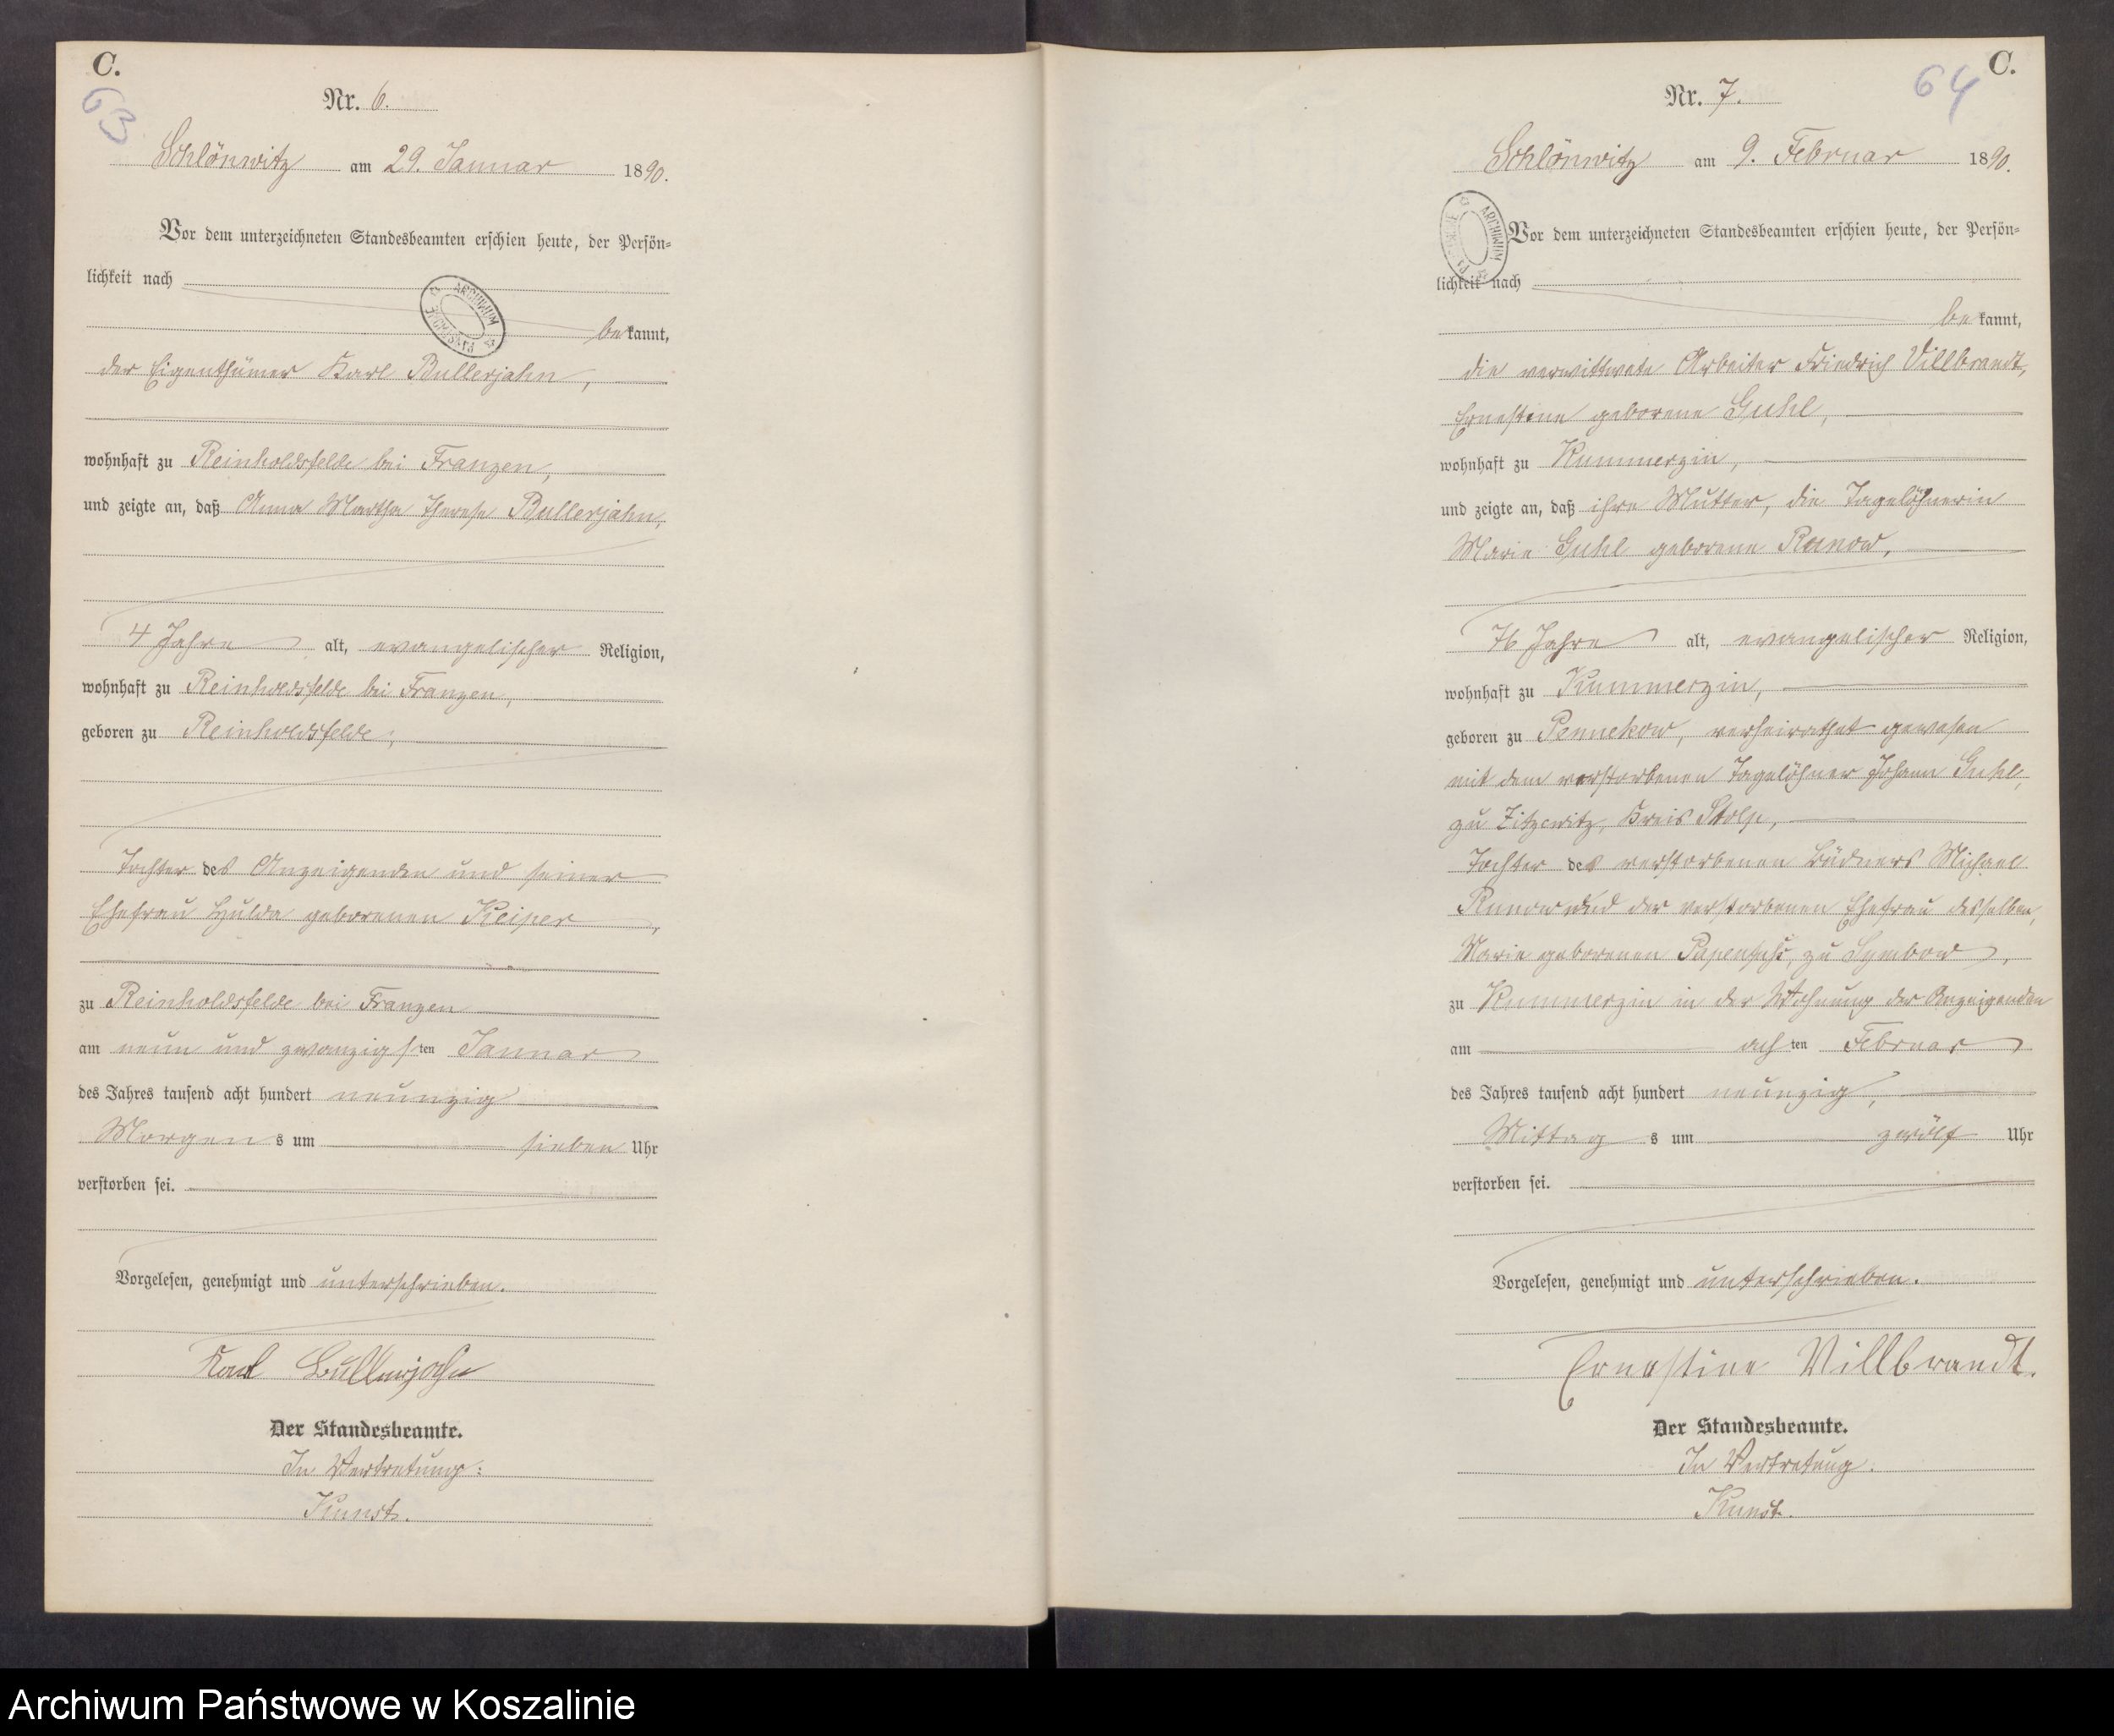 C.
63
Nr. 6.
Schlönwitz am 29. Januar 1890.
Vor dem unterzeichneten Standesbeamten erschien heute, der Persön-
lichkeit nach
bekannt,
der Eigenthümer Karl Bullerjahn,
wohnhaft zu Reinholdsfelde bei Franzen,
und zeigte an, daß Anna Martha Therese Bullerjahn,
4 Jahre alt, evangelischer Religion,
wohnhaft zu Reinholdsfelde bei Franzen,
geboren zu Reinholdsfelde,
Tochter des Anzeigenden und seiner
Ehefrau Hulda geborenen Keiper,
zu Reinholdsfelde bei Franzen
am neun und zwanzigsten Januar
des Jahres tausend acht hundert neunzig
Morgens um sieben Uhr
verstorben sei.
Vorgelesen, genehmigt und unterschrieben.
Karl Bullerjahn
Der Standesbeamte.
In Vertretung:
Kunst.
C.
64
Nr. 7.
Schlönwitz am 9. Februar 1890.
Vor dem unterzeichneten Standesbeamten erschien heute, der Persön-
lichkeit nach
bekannt,
die verwittwete Arbeiter Friedrich Villbrandt,
Ernestine geborene Guhl,
wohnhaft zu Kummerzin,
und zeigte an, daß ihre Mutter, die Tagelöhnerin
Marie Guhl geborene Runow,
76 Jahre alt, evangelischer Religion,
wohnhaft zu Kummerzin,
geboren zu Pennekow, verheirathet gewesen
mit dem verstorbenen Tagelöhner Johann Guhl,
zu Zitzewitz, Kreis Stolp,
Tochter des verstorbenen Büdners Michael
Runow und der verstorbenen Ehefrau desselben,
Marie geborenen Papenfuß, zu Symbow,
zu Kummerzin in der Wohnung der Anzeigenden
am achten Februar
des Jahres tausend acht hundert neunzig,
Mittags um zwölf Uhr
verstorben sei.
Vorgelesen, genehmigt und unterschrieben.
Ernestine Villbrandt.
Der Standesbeamte.
In Vertretung.
Kunst.
ARCHIWUM PAŃSTWOWE
ARCHIWUM
Archiwum Państwowe w Koszalinie